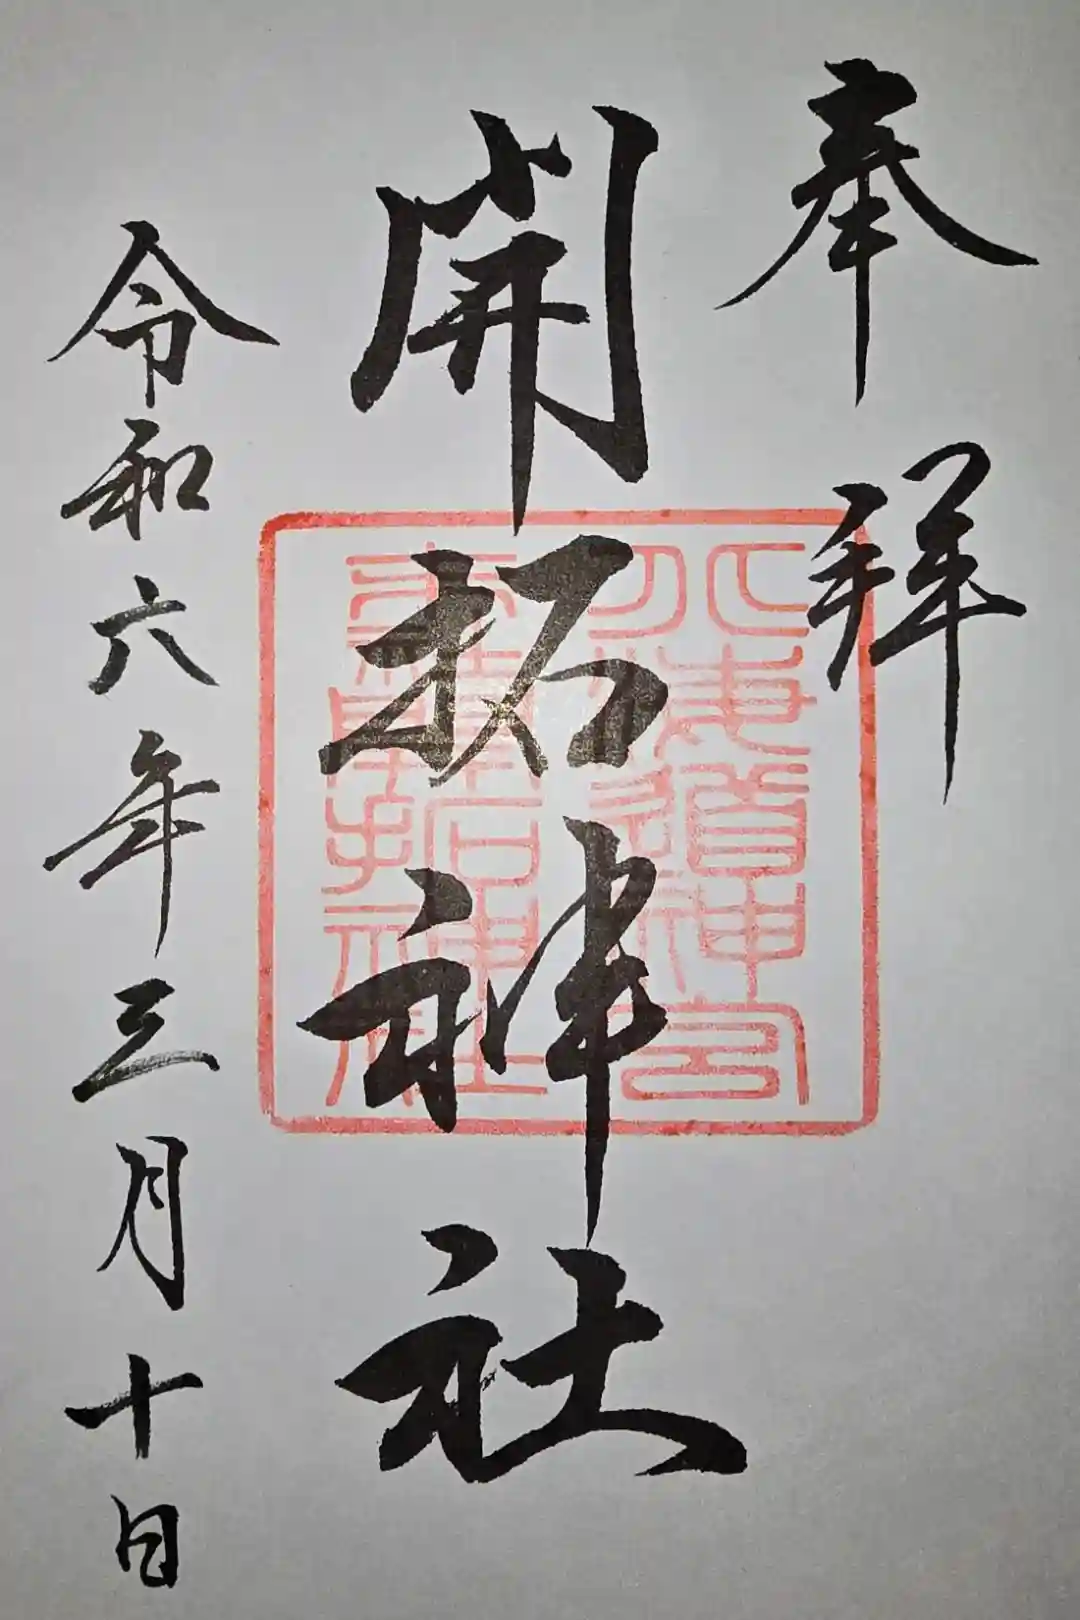 奉拝
開拓神社
令和六年三月十日
北海道神宮
末社開拓神社